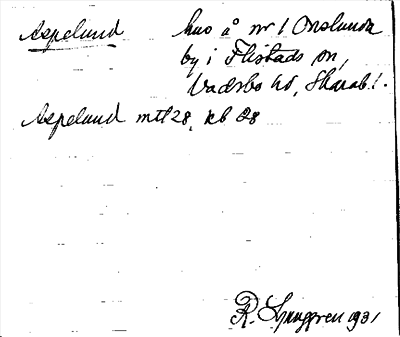 Aspelund hus å nr 1 Onslunda
by i Flistads sn,
Vadsbo hd, Skarab. l.
Aspelund mtl 28, kb 28
R. Ljunggren 1931